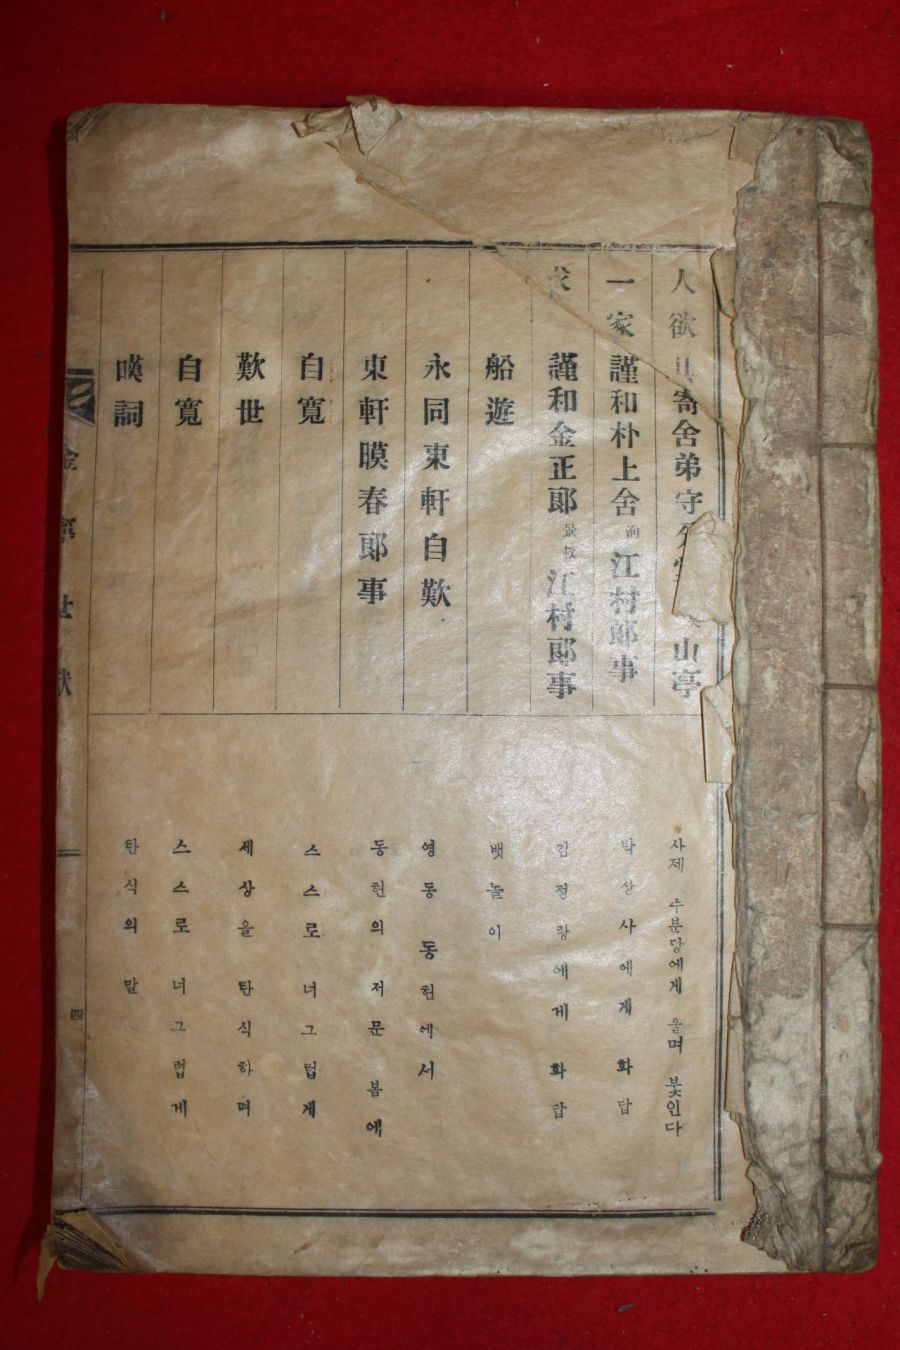 人欲 寄舍弟守 山亭
一家謹和朴上舍 洵 江村郞事
謹和金正郞 景叔 江村郞事
船遊
永同東軒自歎
東軒暯春郞事
自寬
歎世
自寬
嘆詞
사제 수분당에게 울며 붗인다
박상사에게 화답
김정랑에게 화답
뱃놀이
영동 동헌에서
동헌의 저문 봄에
스스로 너그럽게
세상을 탄식하며
스스로 너그럽게
탄식의 말
四